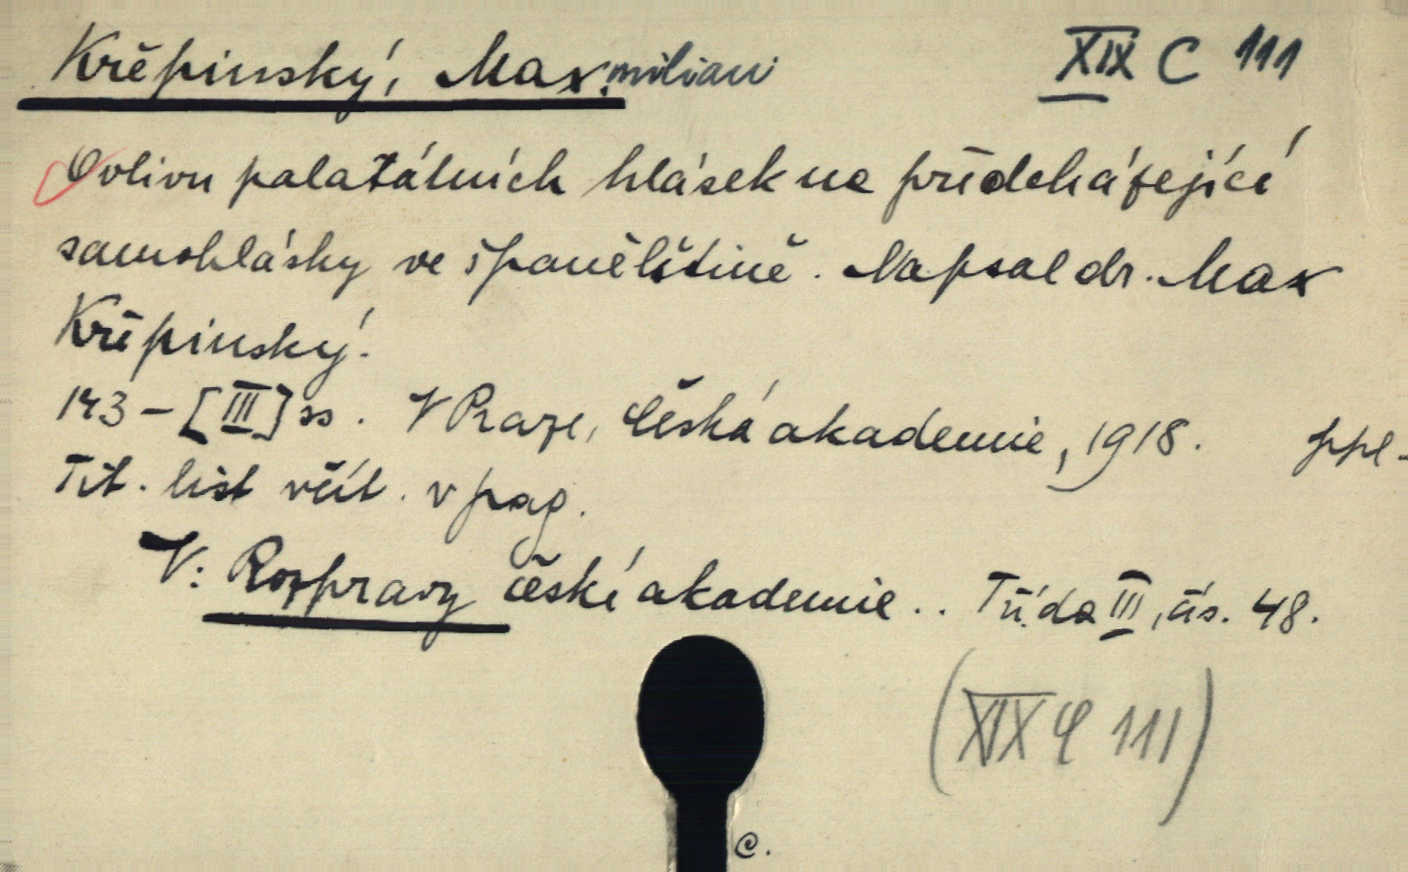 Křěpinský, Max.milian XIX C 111
O vlivu palatálních hlásek na předcházející
samohlásky ve španělštině. Napsal dr. Max
Křěpinský.
143-[III] ss. V Praze, Česká akademie, 1918. ppl-
Tit. list včít. v pag.
V: Rozpravy české akademie.. Třída III, čís. 48.
(XIX C 111)
C.